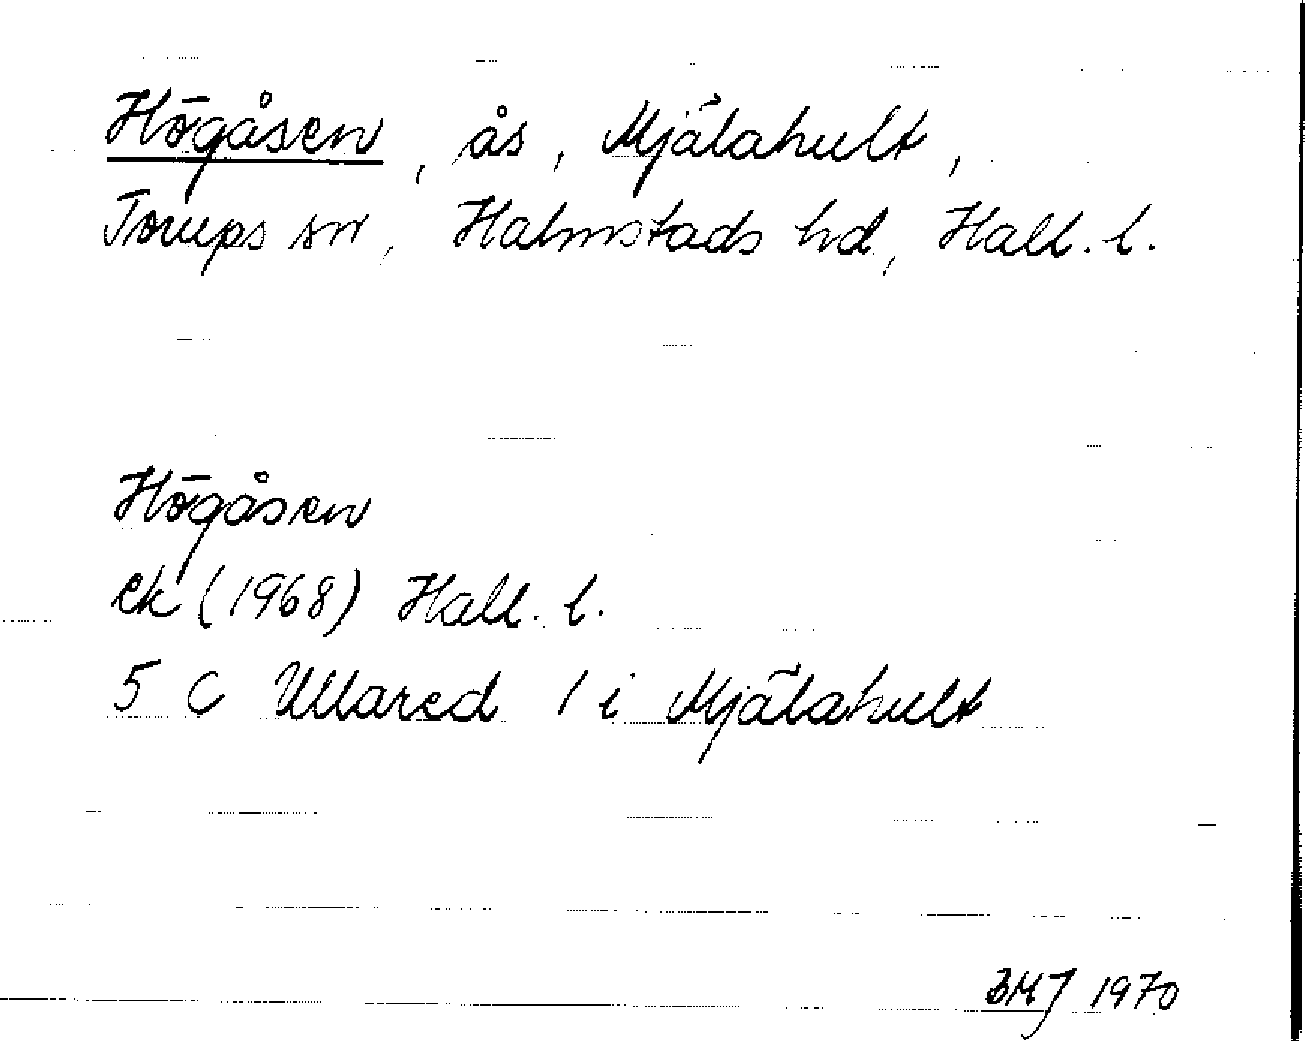 Högåsen, ås, Mjälahult,
Torups sn, Halmstads hd, Hall. l.
Högåsen
ek (1968) Hall. l.
5 C Ullared 1 i Mjälahult
BMJ 1970